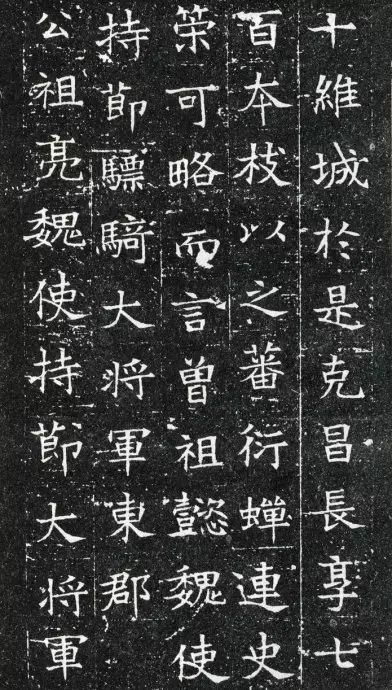 十維城於是克昌長享七
百夲枝以之蕃衍蟬連史
筞可略而言曽祖懿魏使
持莭驃騎大将軍東郡
公祖亮魏使持莭大将軍